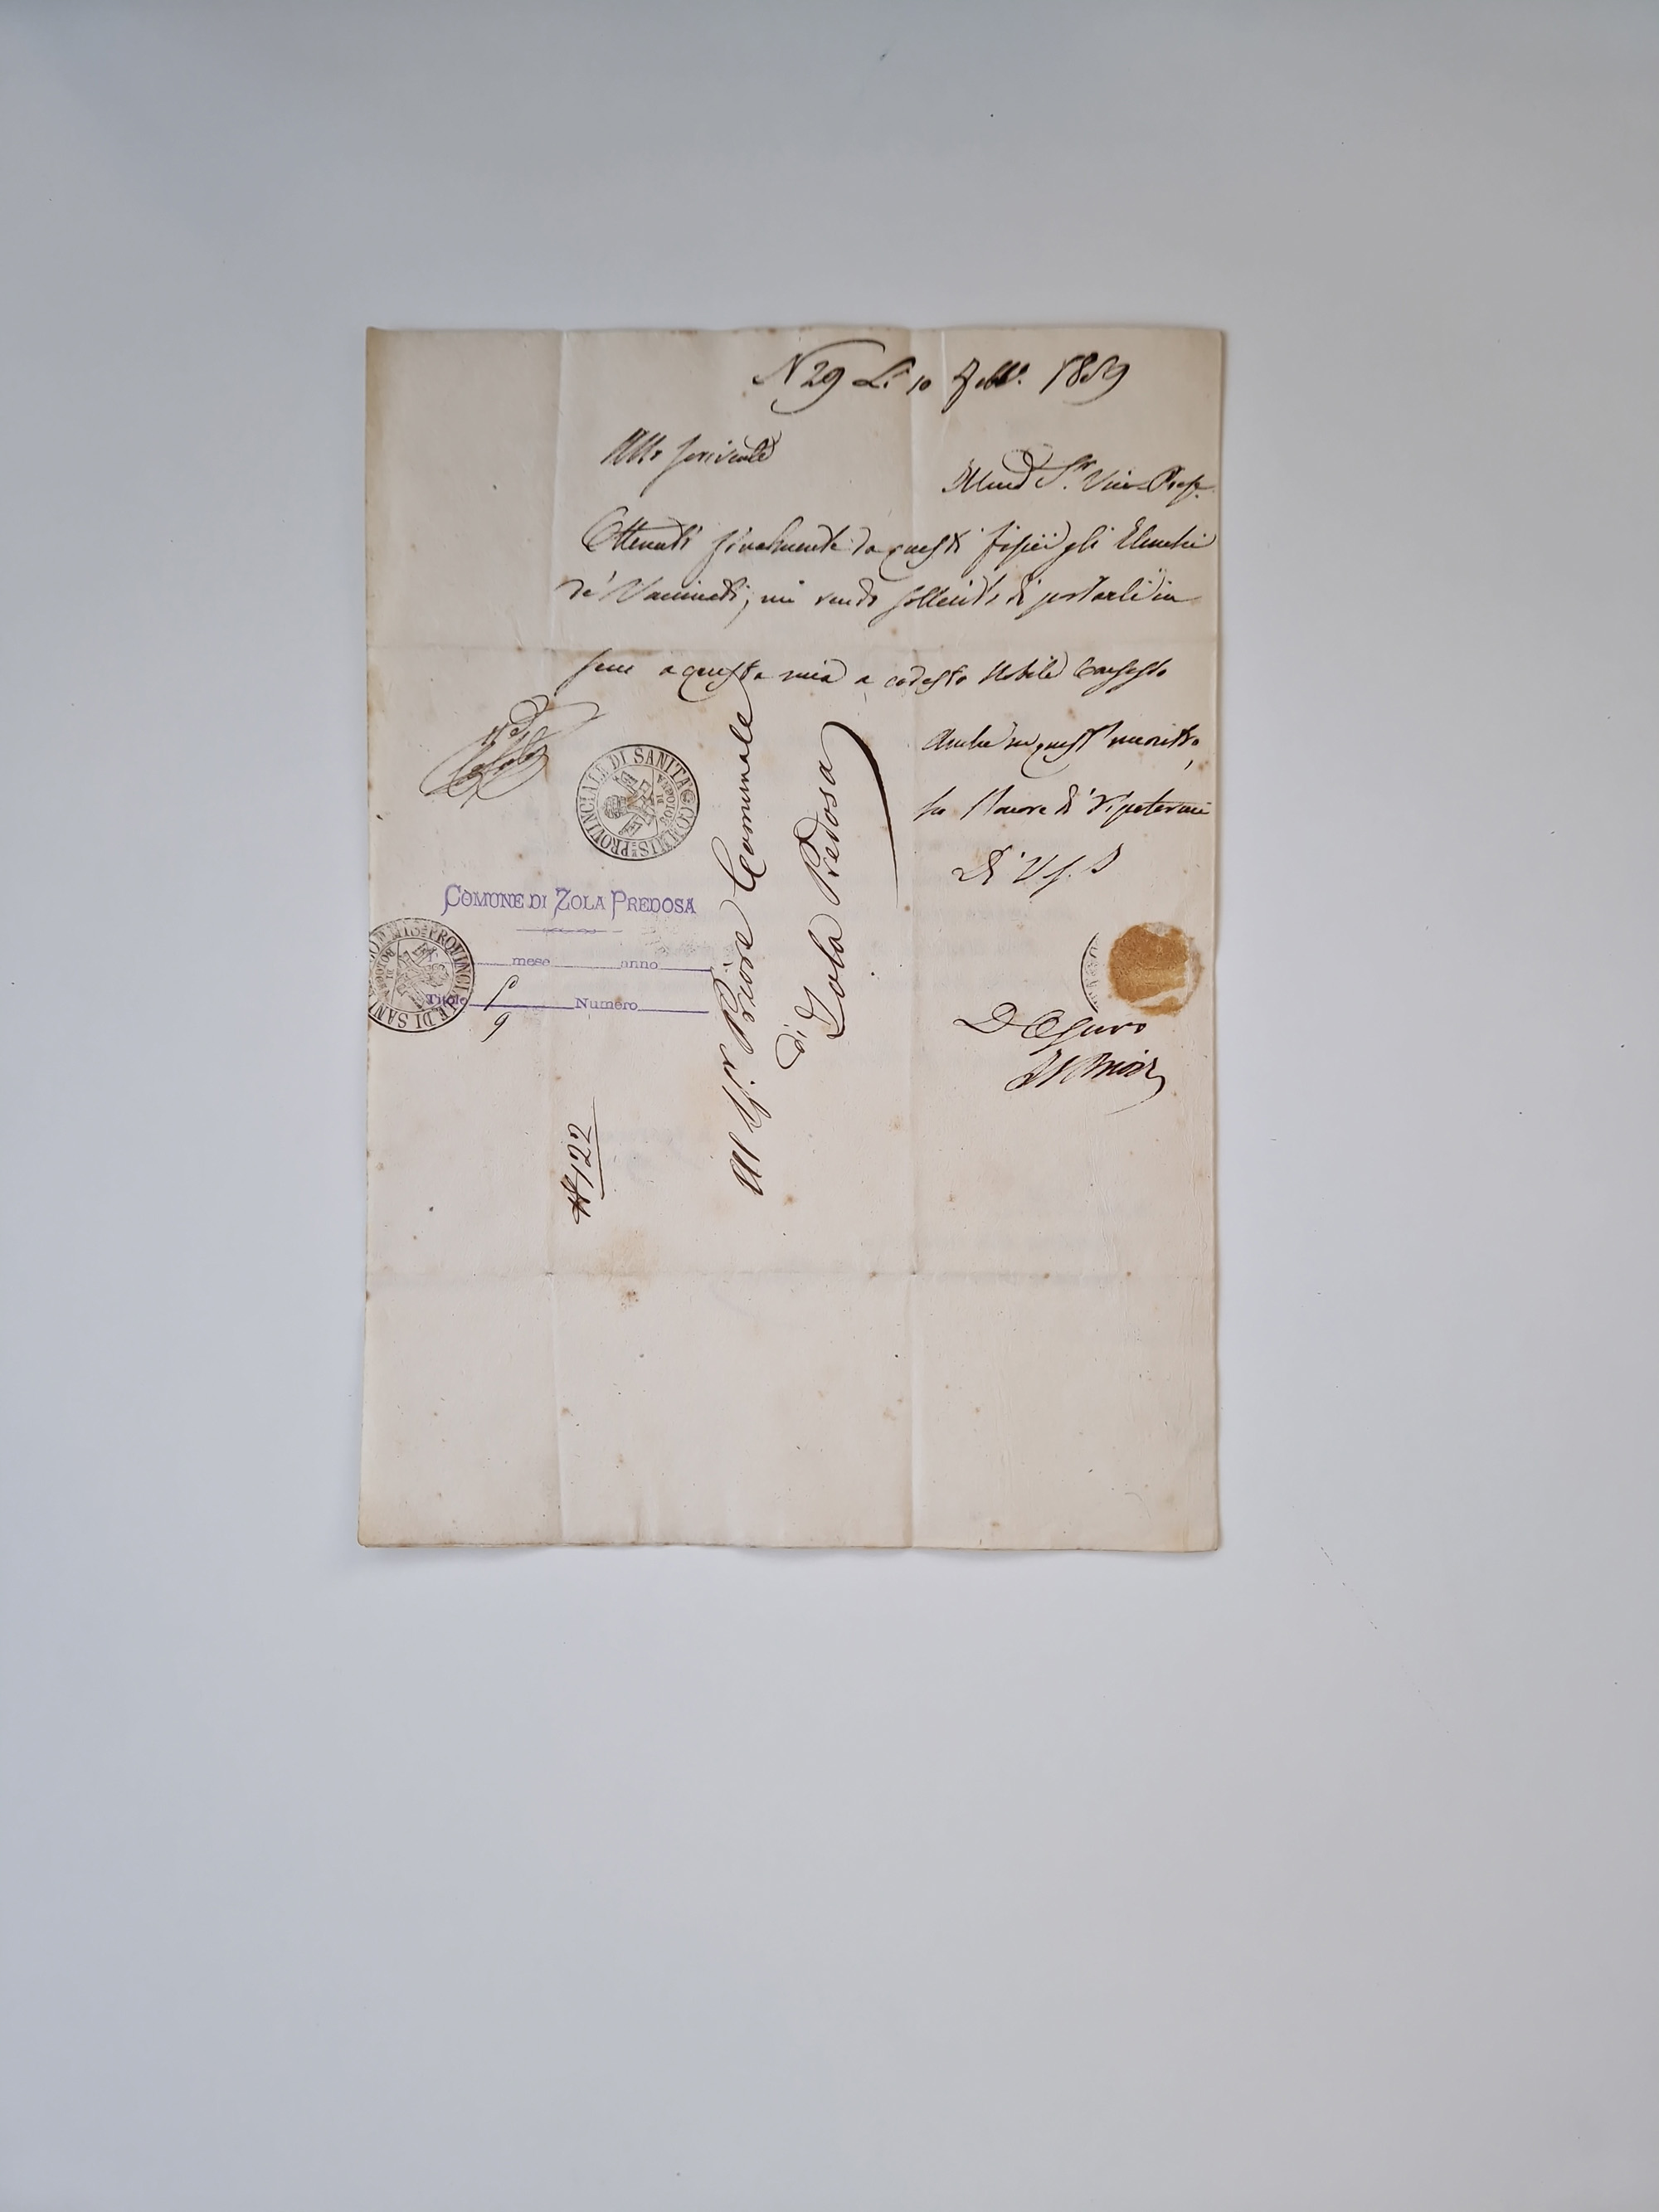 N 29 Li 10 Febb. 1859
Allo scrivente
Sr. Vice Pres.
Ottenuti finalmente da questi fisici gli Elenchi
de' Vaccinati, mi rendo sollecito di portarli in
seno a questa mia a codesto Nobile Consesso
Anche in quest'incontro,
ho l'onore di ripetermi
Di V. S. I
COMMISS. PROVINCIALE DI SANITA
BOLOGNA
COMUNE DI ZOLA PREDOSA
mese anno
Titolo 9 Numero
COMMISS. PROVINCIALE DI SAN
Al Sig.r Priore Comunale
di
Zola Predosa
N 122
Il Priore